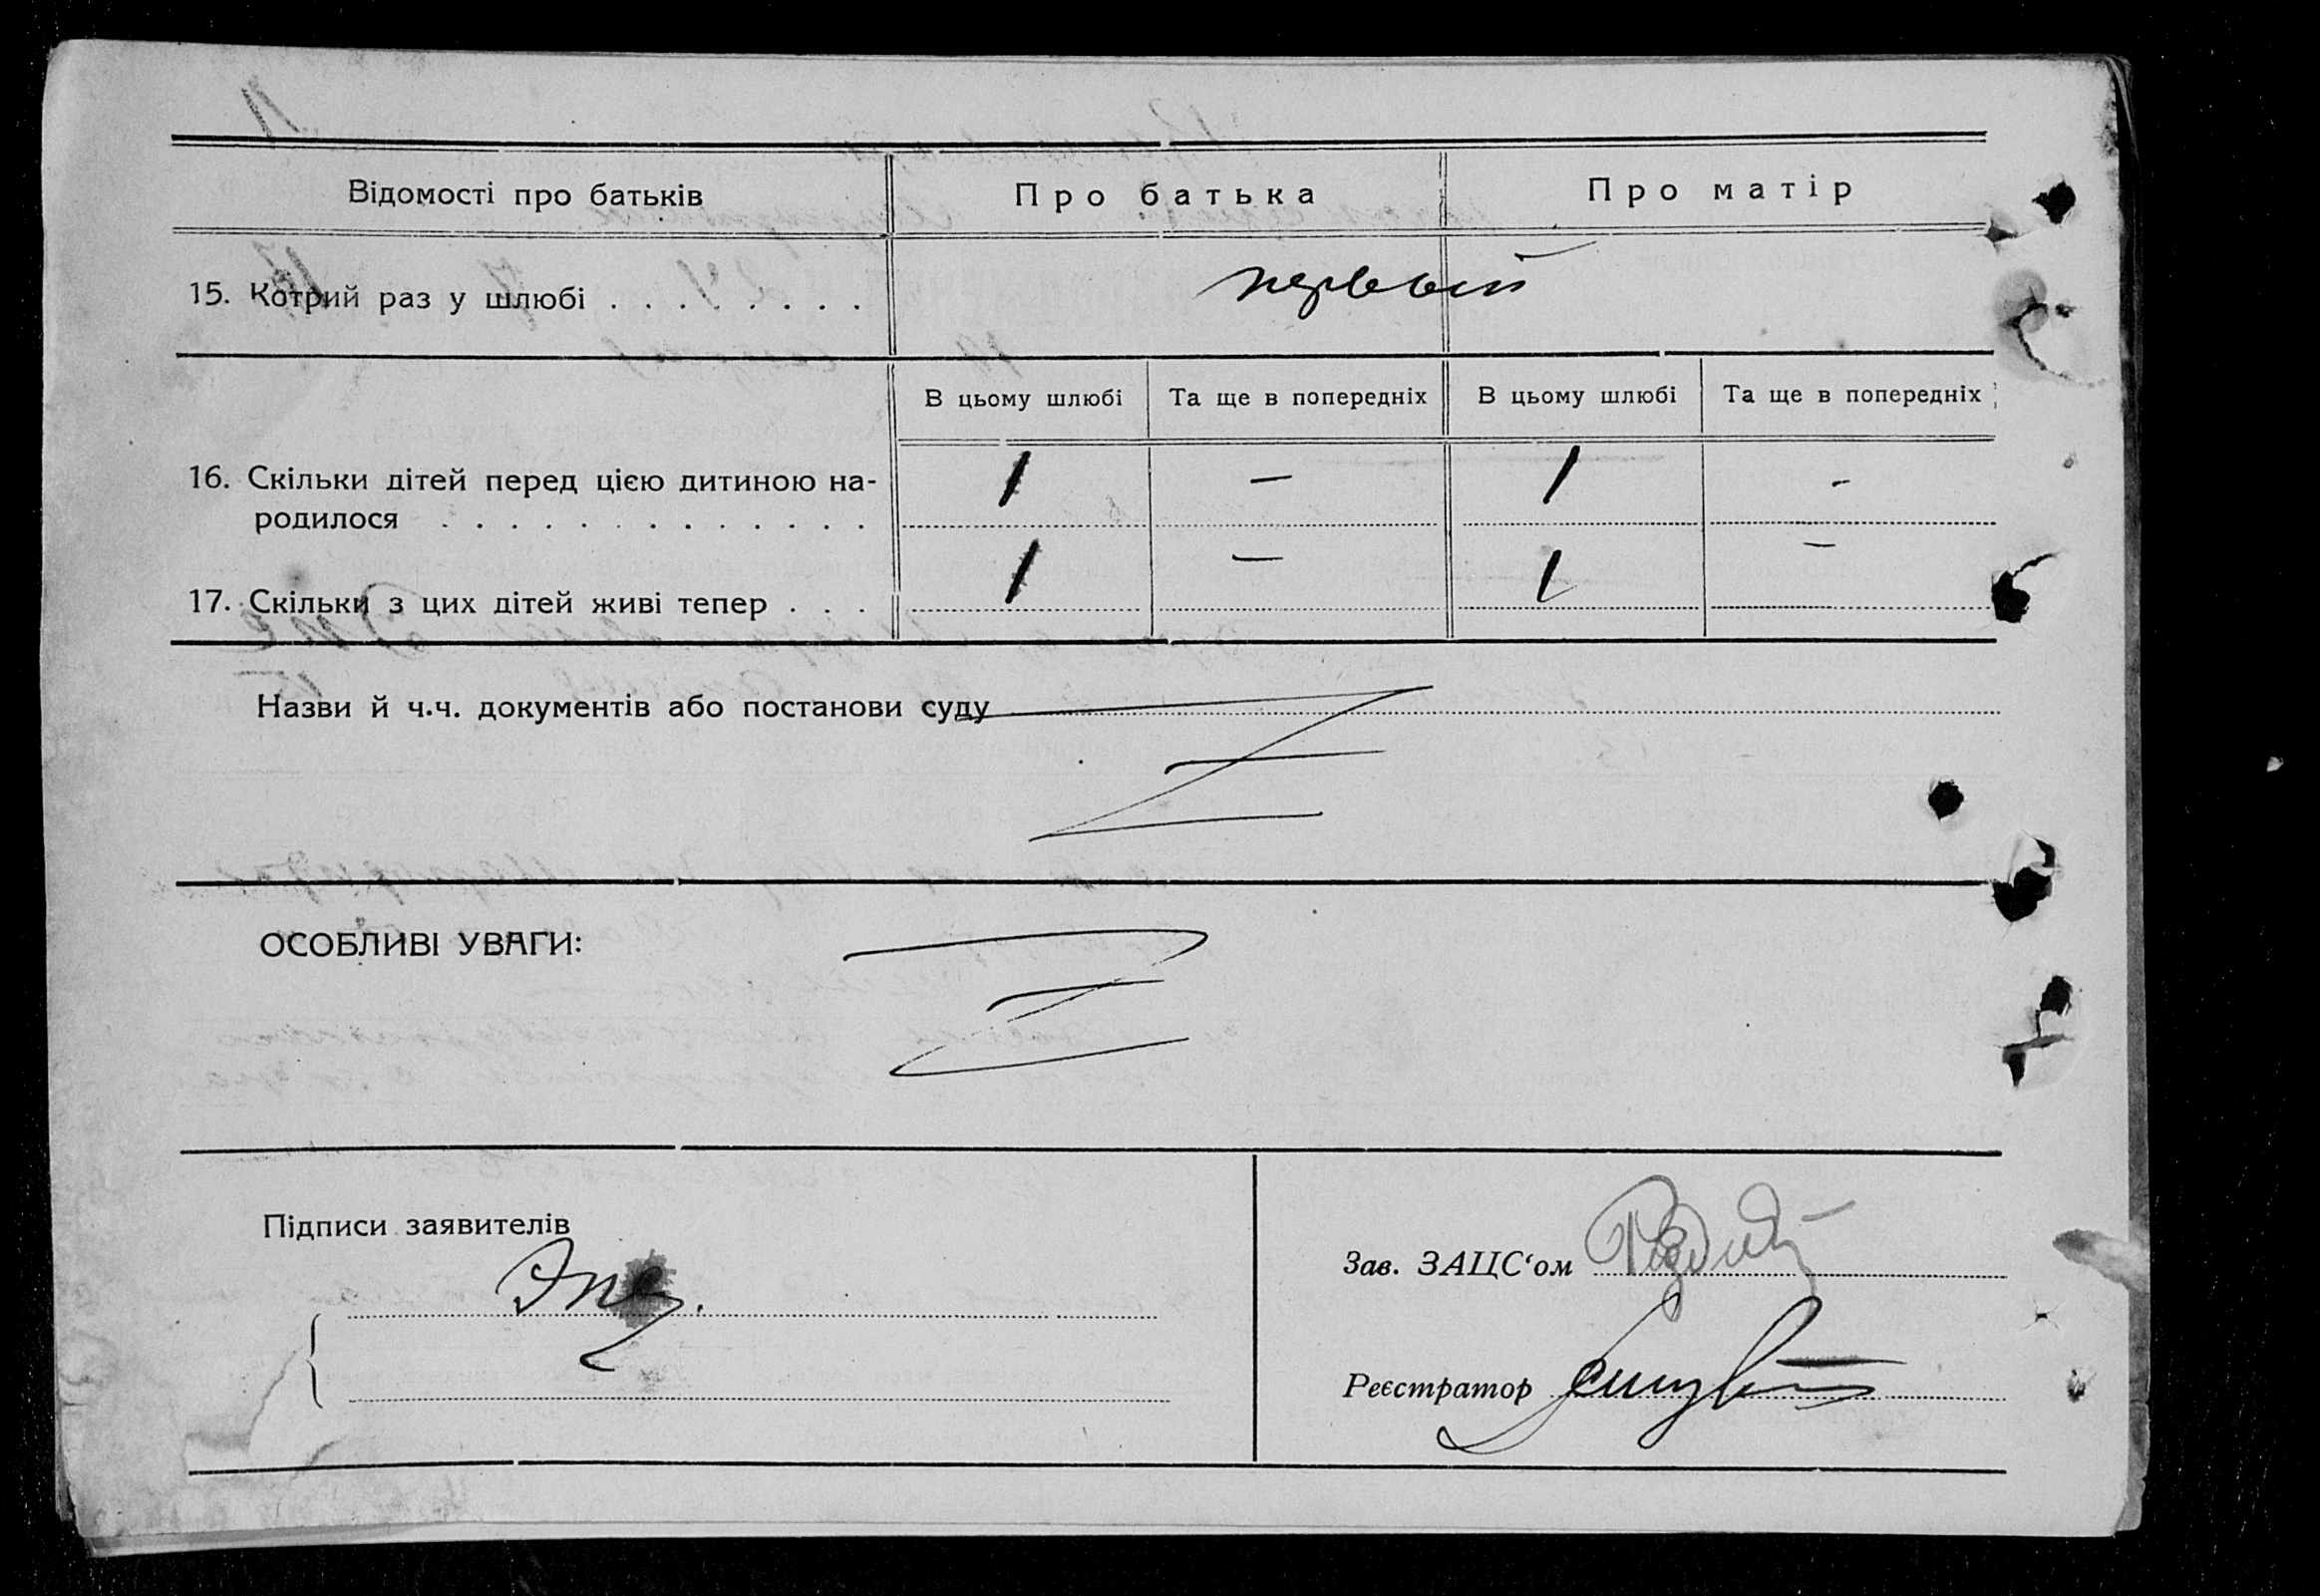 Відомості про батьків Про батька Про матір
15. Котрий раз у шлюбі . . . . . . . . первый
В цьому шлюбі Та ще в попередніх В цьому шлюбі Та ще в попередніх
16. Скільки дітей перед цією дитиною на-
родилося . . . . . . . . . . . . . 1 — 1 -
17. Скільки з цих дітей живі тепер . . . 1 — 1 —
Назви й ч.ч. документів або постанови суду
ОСОБЛИВІ УВАГИ:
Підписи заявителів
Зав. ЗАЦС‘ом
Реєстратор